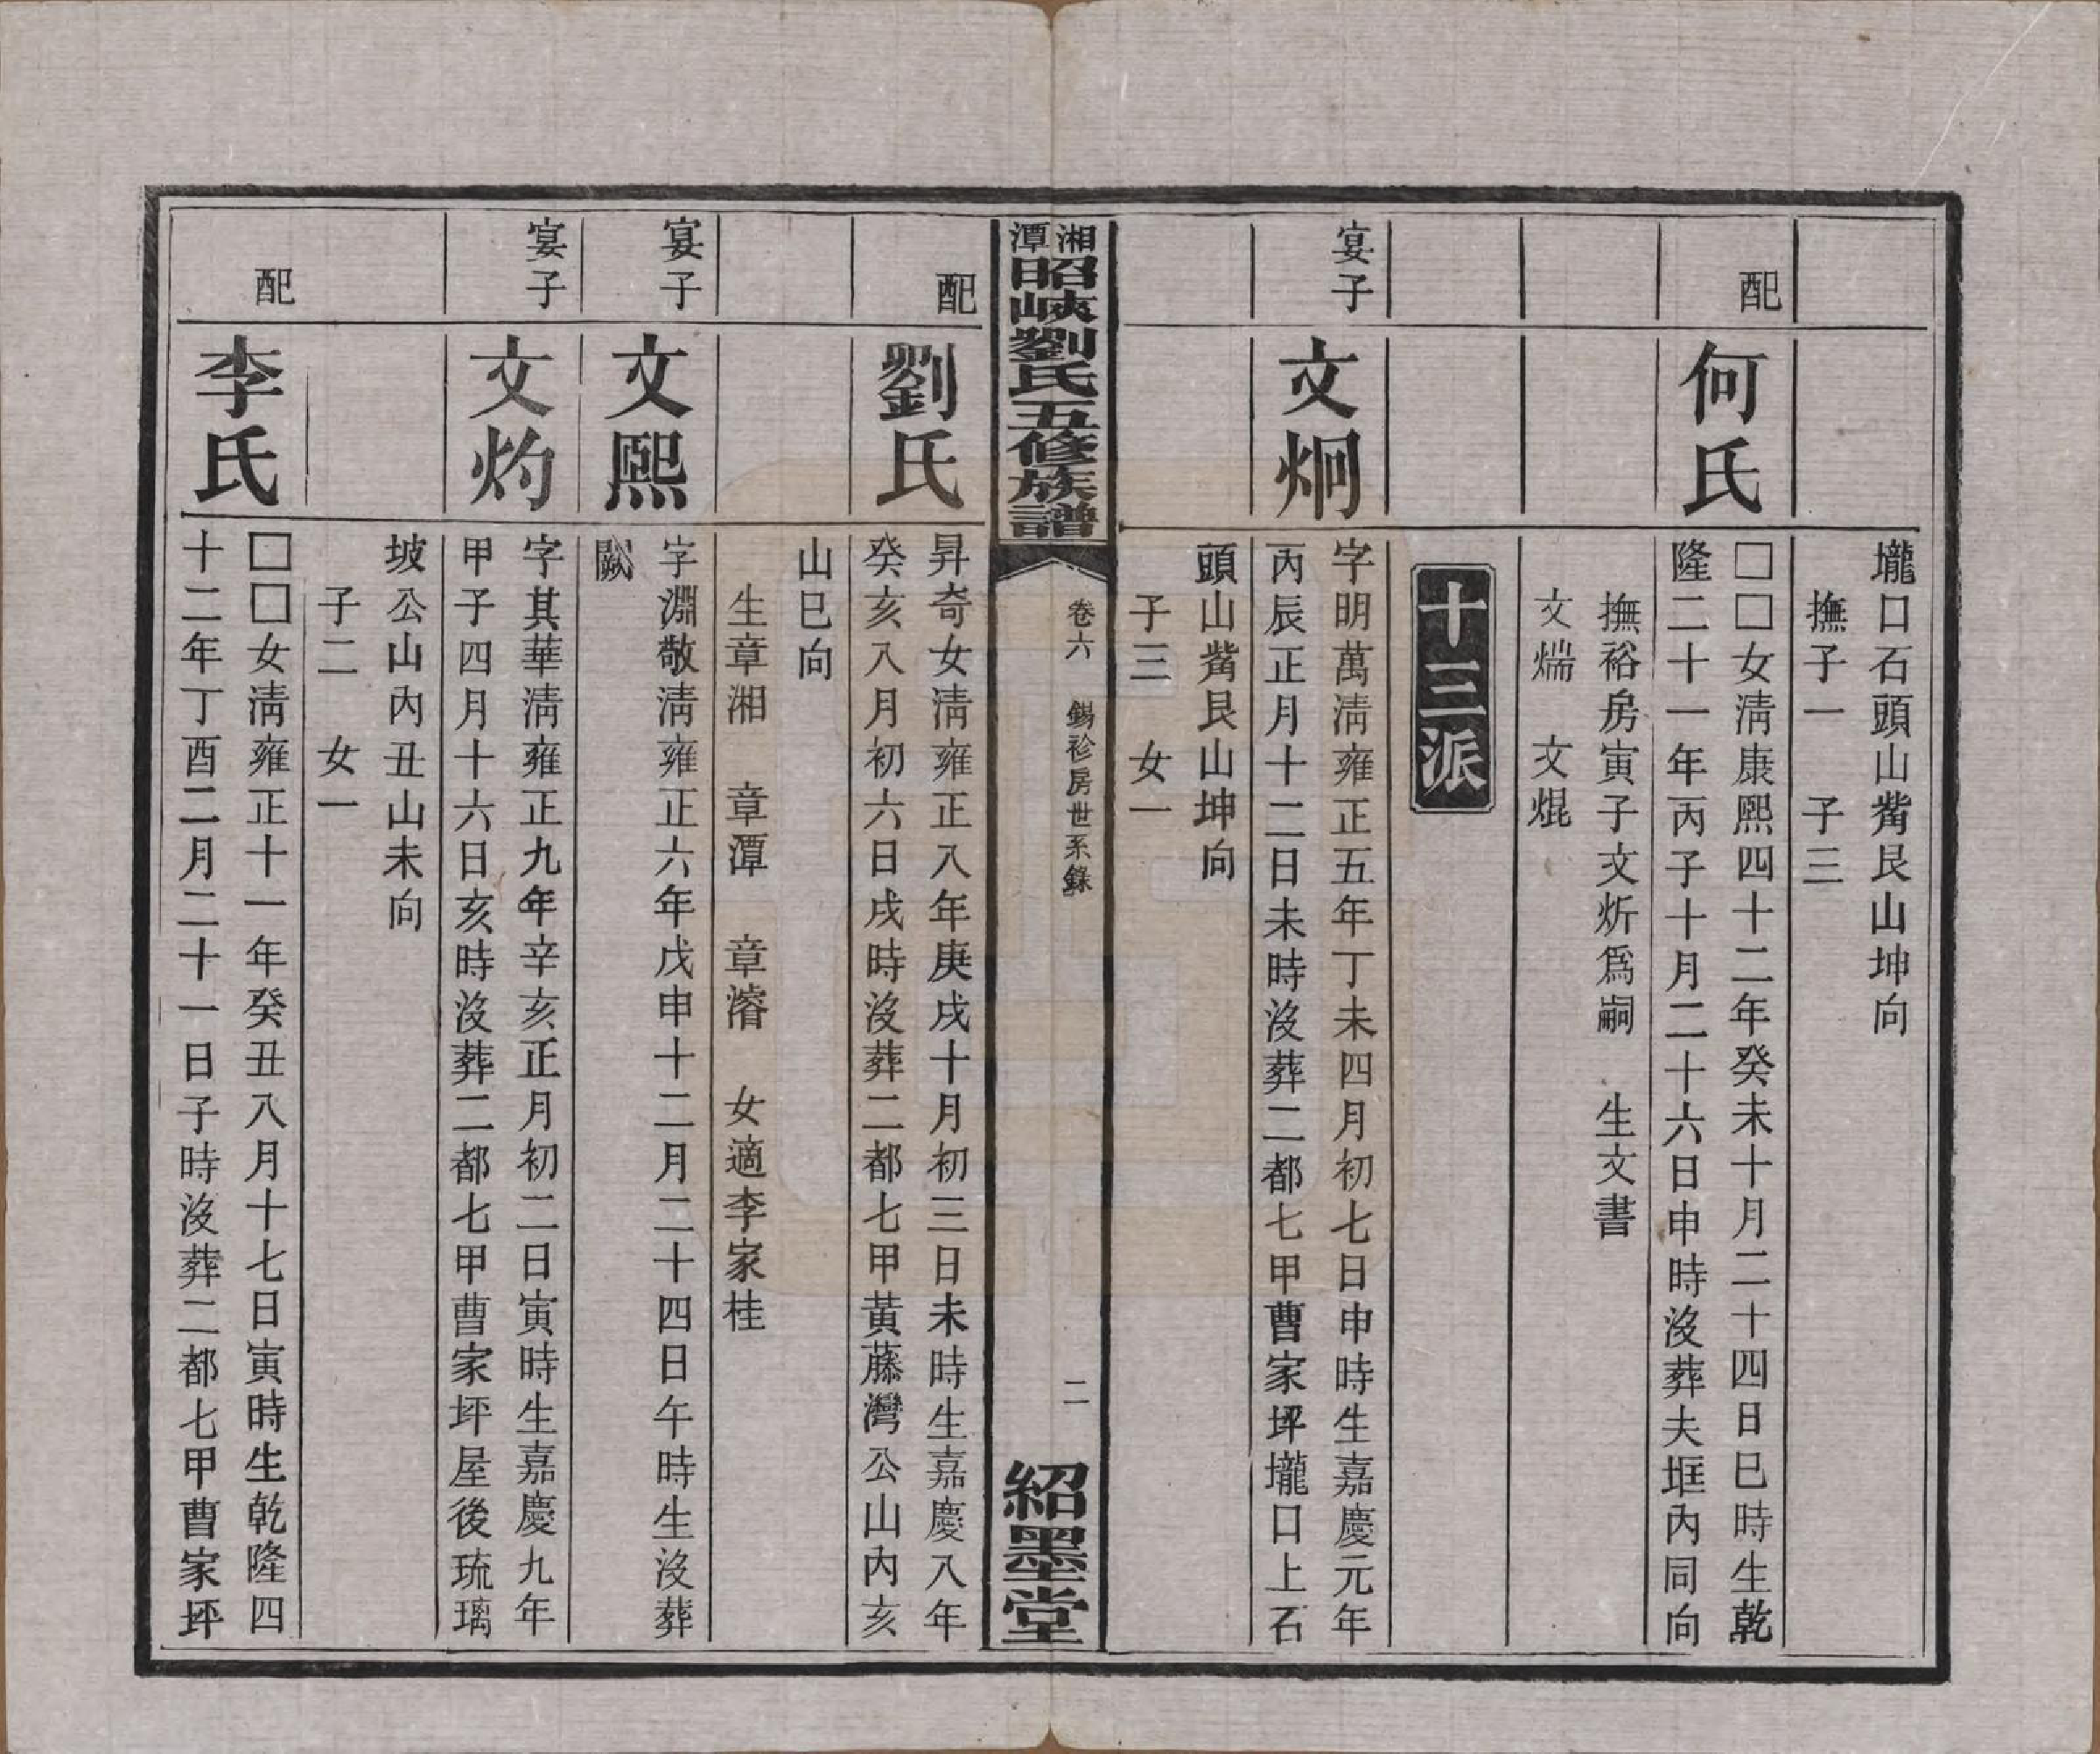 壠口石頭山觜艮山坤向
撫子一　子三
配
何氏
□□女淸康熙四十二年癸未十月二十四日巳時生乾
隆二十一年丙子十月二十六日申時沒葬夫塋內同向
撫裕房寅子文炘爲嗣　生文書
文煓　文焜
十三派
宴子
文炯
字明萬淸雍正五年丁未四月初七日申時生嘉慶元年
丙辰正月十二日未時沒葬二都七甲曹家坪壠口上石
頭山觜艮山坤向
子三　女一
湘潭昭峽劉氏五修族譜
卷六　錫袗房世系錄
二
紹墨堂
配
劉氏
昇奇女淸雍正八年庚戌十月初三日未時生嘉慶八年
癸亥八月初六日戌時沒葬二都七甲黃藤灣公山內亥
山巳向
生章湘　章潭　章濬　女適李家桂
宴子
文熙
字淵敬淸雍正六年戊申十二月二十四日午時生沒葬
闕
宴子
文灼
字其華淸雍正九年辛亥正月初二日寅時生嘉慶九年
甲子四月十六日亥時沒葬二都七甲曹家坪屋後琉璃
坡公山內丑山未向
子二　女一
配
李氏
□□女淸雍正十一年癸丑八月十七日寅時生乾隆四
十二年丁酉二月二十一日子時沒葬二都七甲曹家坪